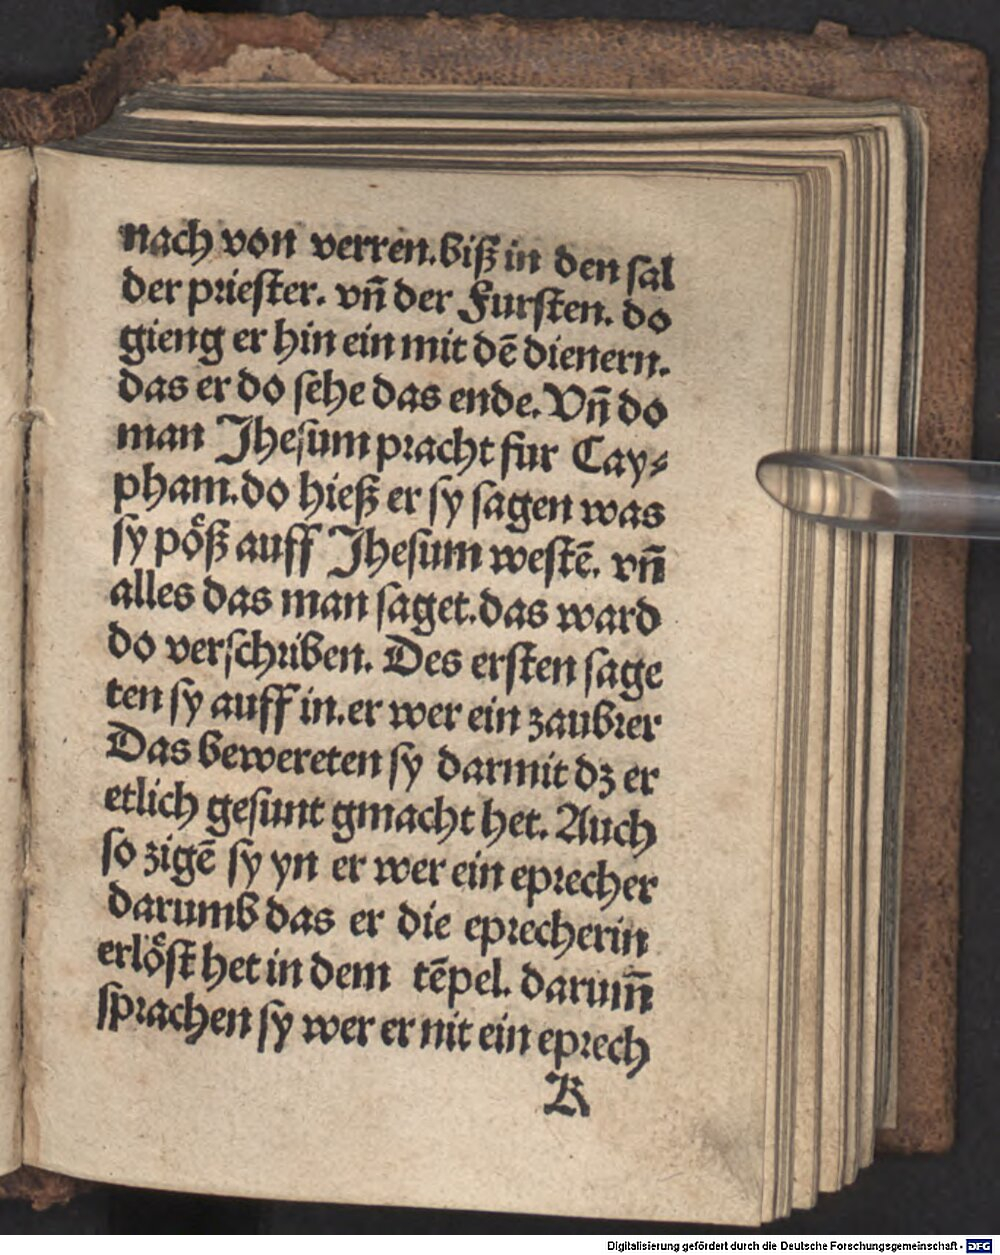 nach von verren. biß in den sal
der priester. vn̄ der Fursten. do
gieng er hin ein mit dē dienern.
das er do sehe das ende. Vn̄ do
man Jhesum pracht fur Cay⸗
pham. do hieß er sy sagen was
sy poͤß auff Jhesum westē. vn̄
alles das man saget. das ward
do verschriben. Des ersten sage
ten sy auff in. er wer ein zaubrer
Das bewereten sy darmit dz er
etlich gesunt gmacht het. Auch
so zigē sy yn er wer ein eprecher
darumb das er die eprecherin
erloͤst het in dem tēpel. darum̄
sprachen sy wer er nit ein eprech
K
Digitalisierung gefördert durch die Deutsche Forschungsgemeinschaft - DFG